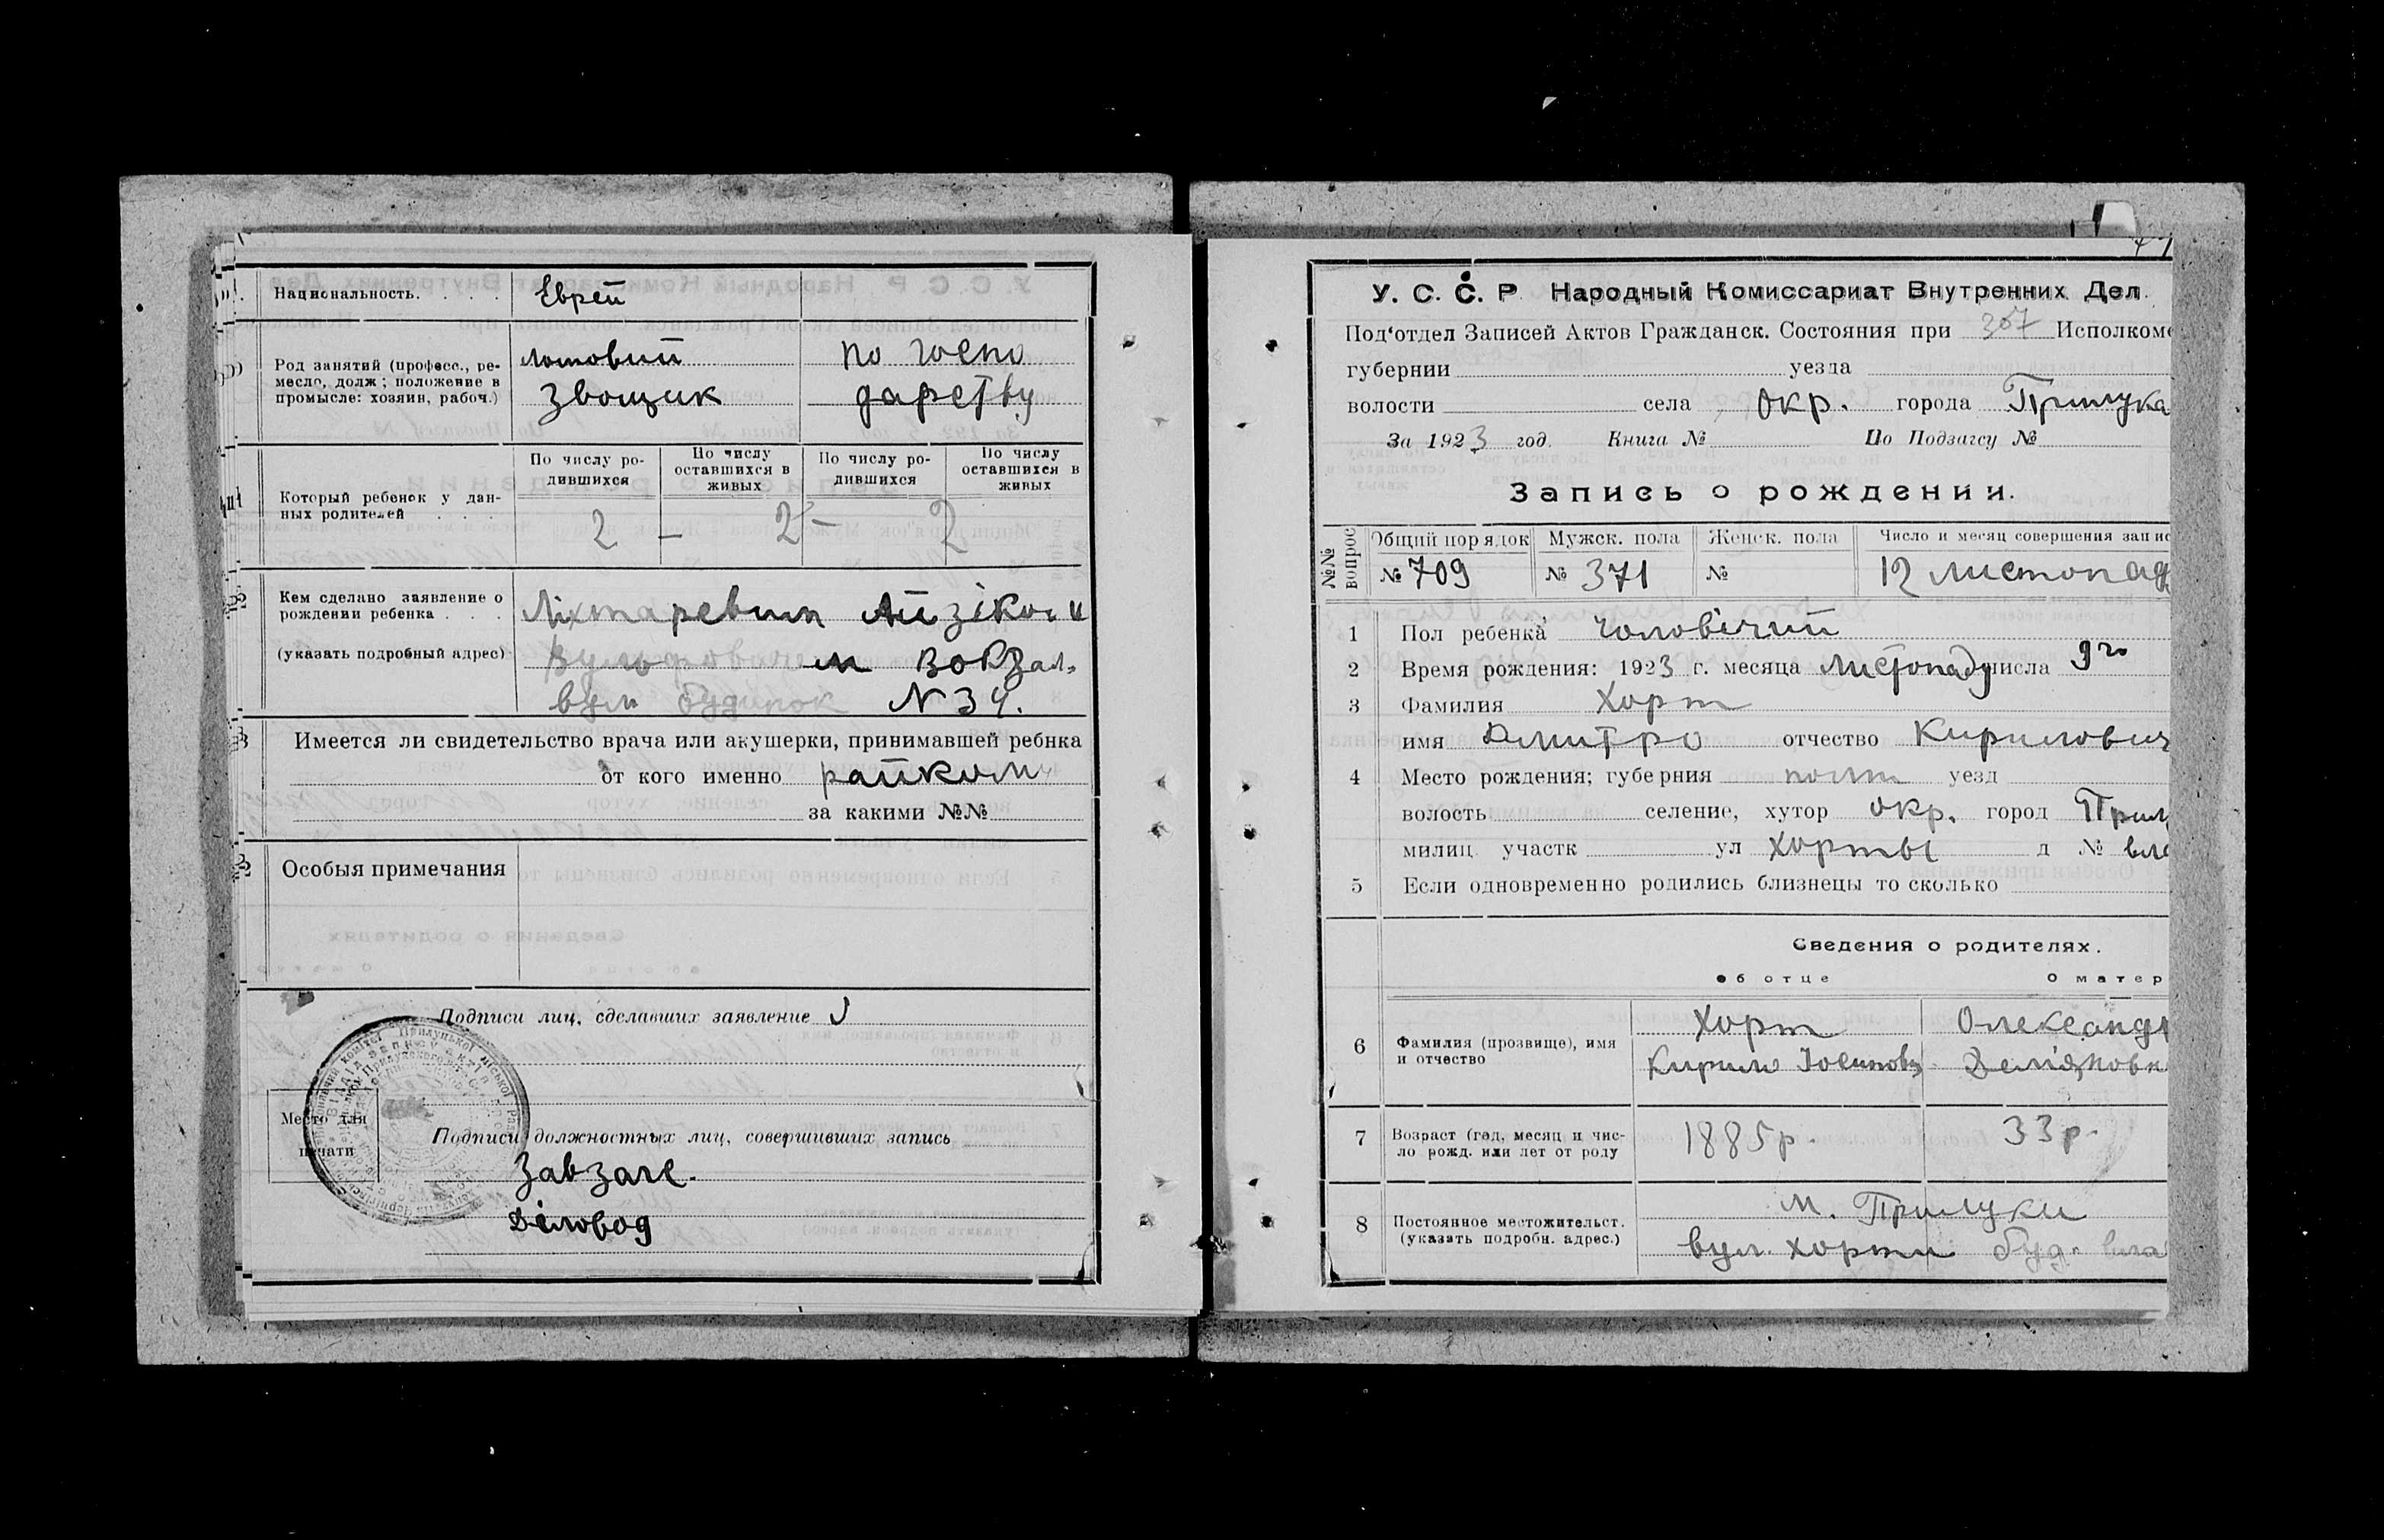 Национальность. . . . Еврей
Род занятий (професс., ре-
месло, долж; положение в
промысле: хозяин, рабоч.)
ломовий по госпо
звощик дарству
Который ребенок у дан-
ных родителей . . .
По числу ро-
дившихся
По числу
оставшихся в
живых
По числу ро-
дившихся
По числу
оставшихся в
живых
2 — 2 — 2
Кем сделано заявление о
рождении ребенка . . .
(указать подробный адрес)
Ліхтаревим Айзіком
Вульфовичем Вокзал.
вул будинок N 34.
Имеется ли свидетельство врача или акушерки, принимавшей ребнка
от кого именно райкому
за какими №№
Особыя примечания
Подписи лиц, сделавших заявление
Место для
печати
Подписи должностных лиц, совершивших запись
Завзагс.
Діловод
У. С. С. Р. Народный Комиссариат Внутренних Дел.
Под‘отдел Записей Актов Гражданск. Состояния при 307 Исполкоме
губернии уезда
волости села окр. города Прилука
За 1923 год. Книга № По Подзагсу №
Запись о рождении.
№№ вопрос
Общий порядок Мужск. пола Женск. пола Число и месяц совершения запис
№ 709 № 371 № 12 листопад
1 Пол ребенка чоловічий
2 Время рождения: 1923 г. месяца листопаду числа 9го
3 Фамилия Хорт
имя Дмитро отчество Кирилович
4 Место рождения; губерния полт уезд
волость селение, хутор окр. город Прил
милиц участк ул Хорты д № вла
5 Если одновременно родились близнецы то сколько
Сведения о родителях.
об отце О матер
6 Фамилия (прозвище), имя
и отчество
Хорт Олександр
Кирило Іосипович Демідковн
7 Возраст (год, месяц и чис-
ло рожд. или лет от роду
1885р. 33р.
8 Постоянное местожительст.
(указать подробн. адрес.)
м. Прилуки
вул. Хорти буд. вла